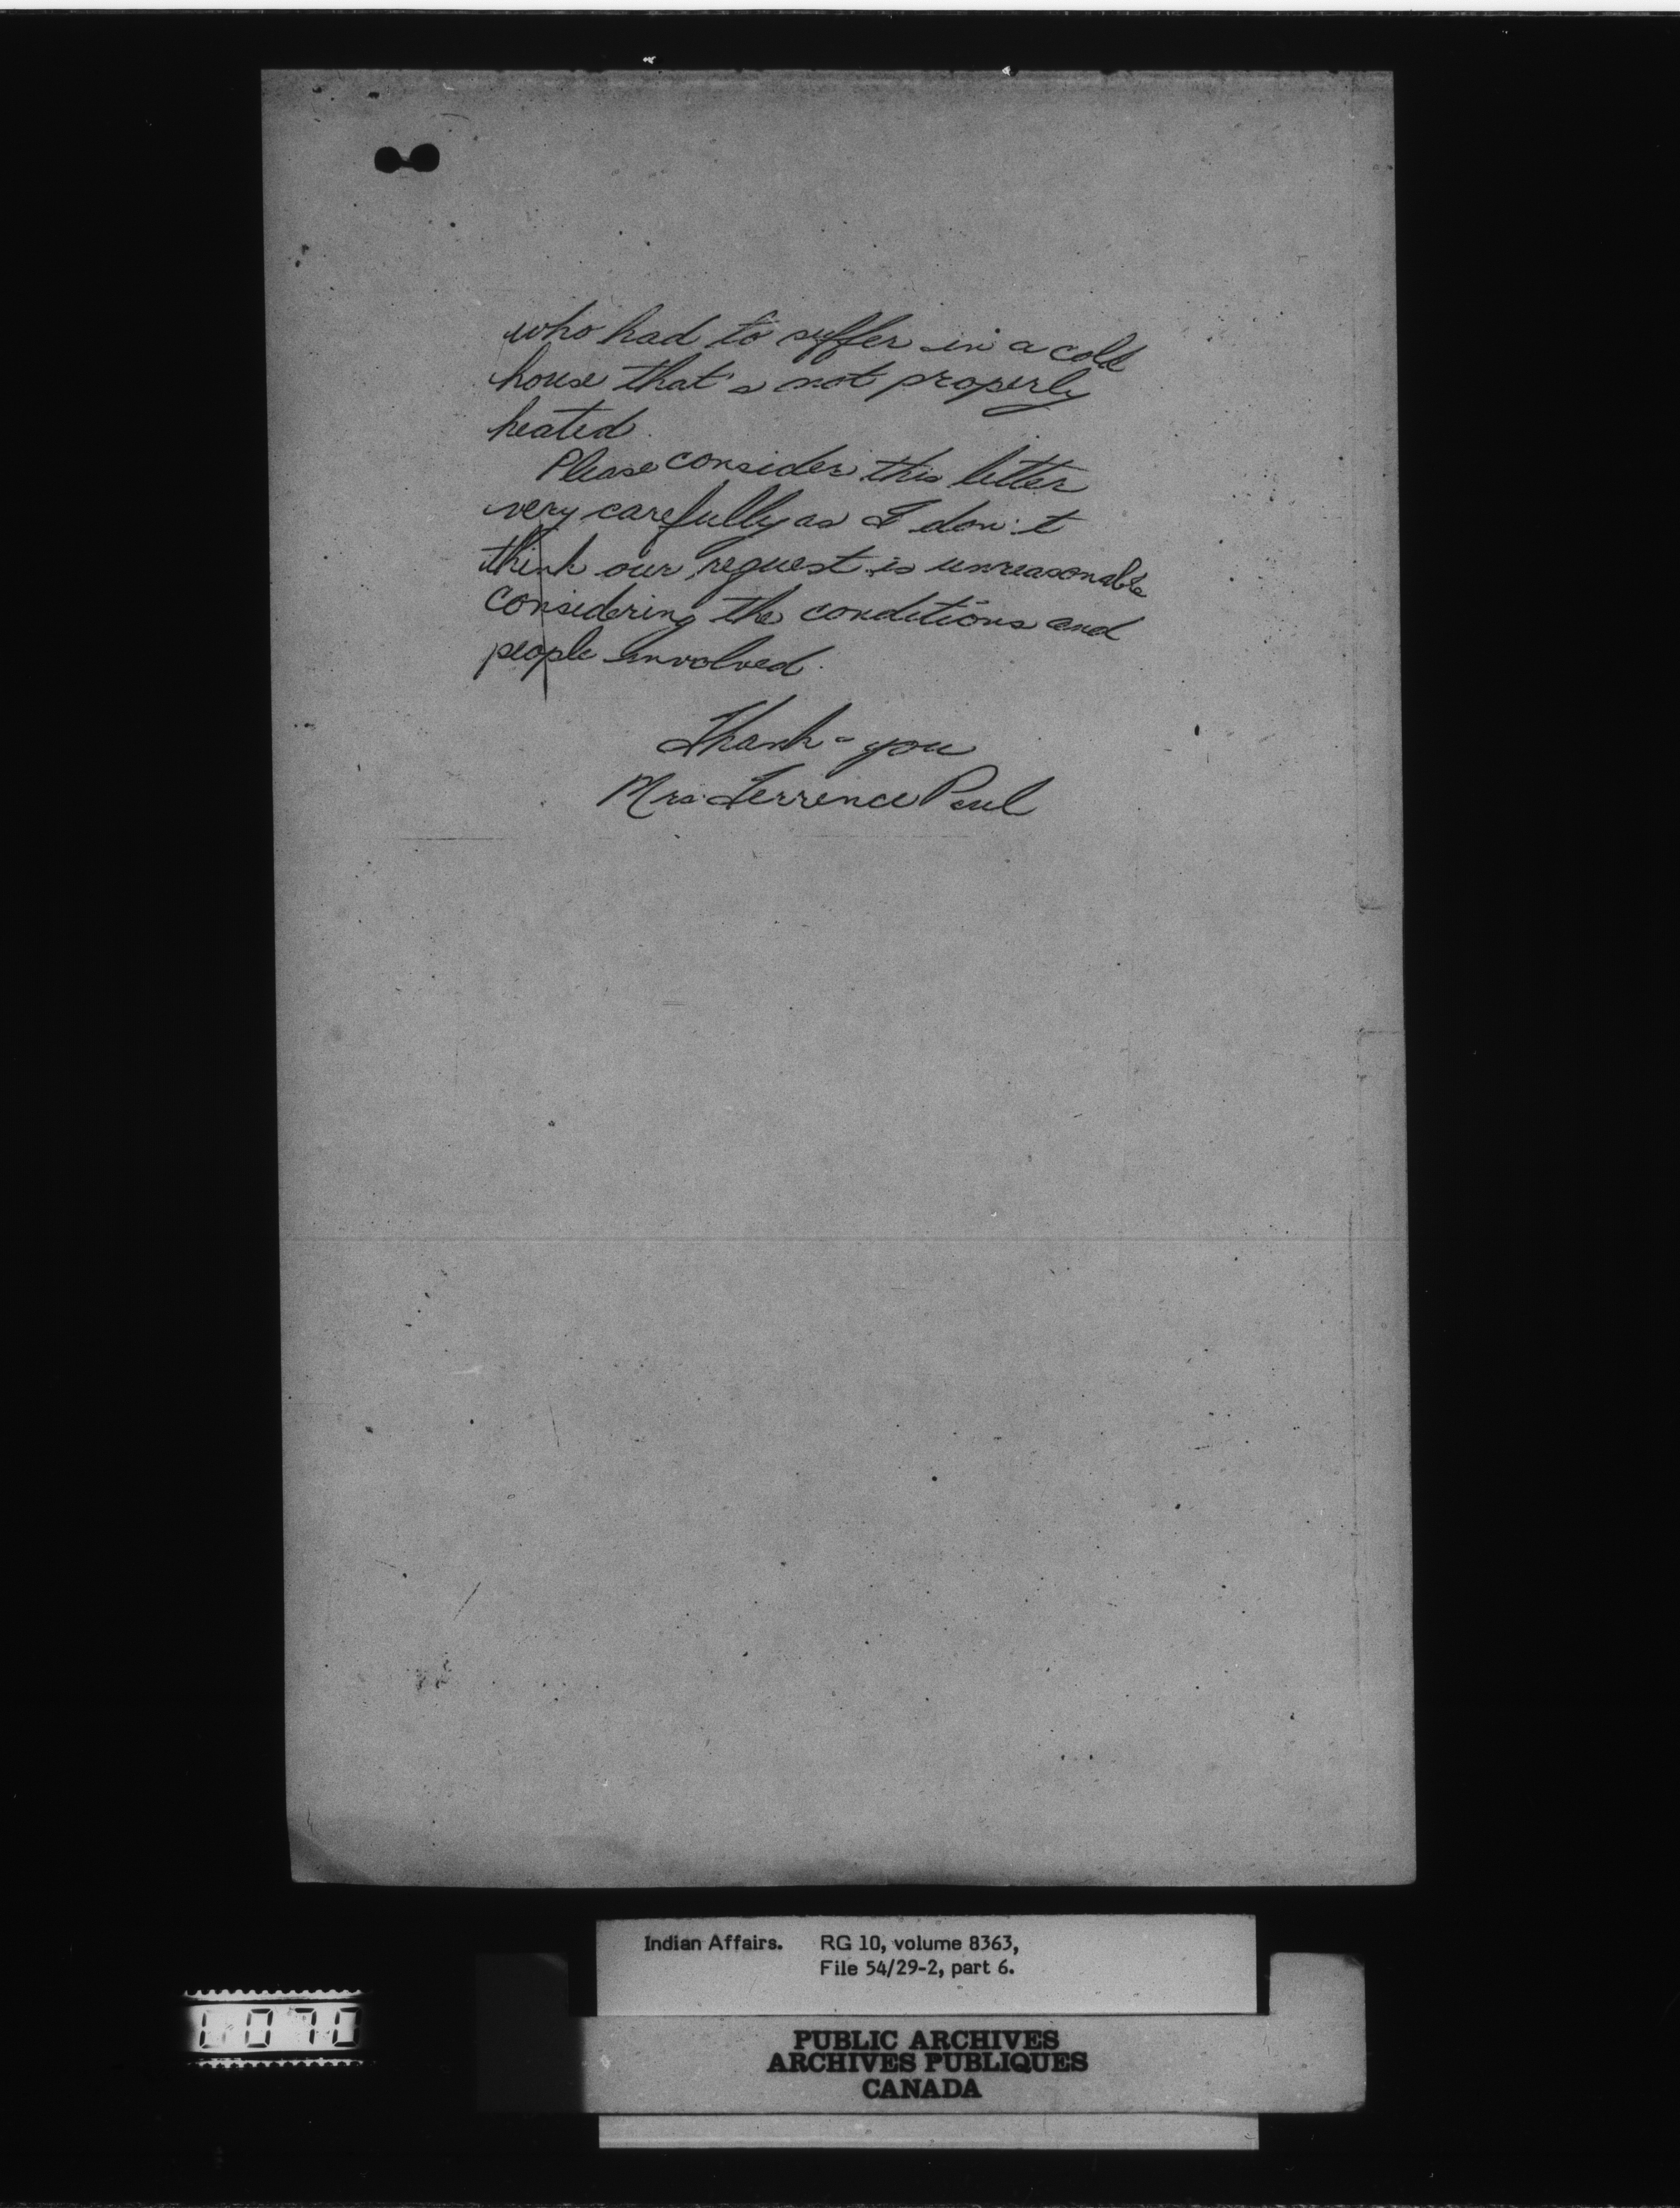 who had to suffer in a cold
house that's not properly
heated.
Please consider this letter
very carefully as I don't
think our request is unreasonable
considering the conditions and
people involved.
Thank-you
Mrs. Terrence Paul
Indian Affairs. RG 10, volume 8363,
File 54/29-2, part 6.
PUBLIC ARCHIVES
ARCHIVES PUBLIQUES
CANADA